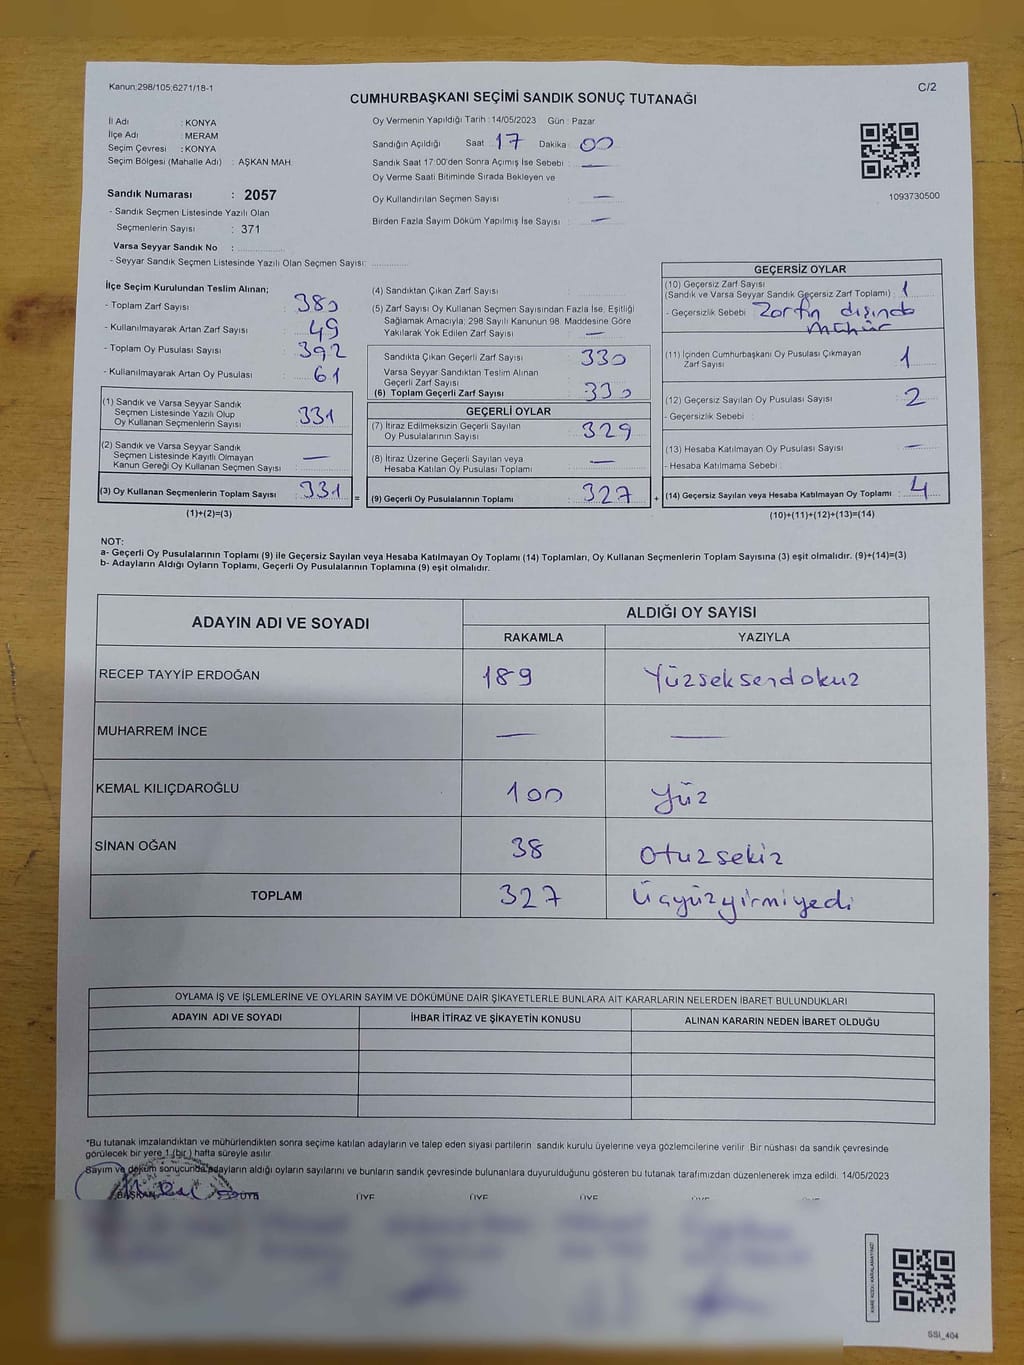 Kanun;298/105;6271/18-1
C/2
CUMHURBAŞKANI SEÇİMİ SANDIK SONUÇ TUTANAĞI
İl Adı : KONYA
İlçe Adı : MERAM
Seçim Çevresi : KONYA
Seçim Bölgesi (Mahalle Adı) : AŞKAN MAH.
Sandık Numarası : 2057
- Sandık Seçmen Listesinde Yazılı Olan
Seçmenlerin Sayısı : 371
Varsa Seyyar Sandık No :
- Seyyar Sandık Seçmen Listesinde Yazılı Olan Seçmen Sayısı:
Oy Vermenin Yapıldığı Tarih : 14/05/2023 Gün : Pazar
Sandığın Açıldığı Saat : 17 Dakika : 00
Sandık Saat 17:00'den Sonra Açımış İse Sebebi : —
Oy Verme Saati Bitiminde Sırada Bekleyen ve
Oy Kullandırılan Seçmen Sayısı : —
Birden Fazla Sayım Döküm Yapılmış İse Sayısı : —
1093730500
İlçe Seçim Kurulundan Teslim Alınan;
- Toplam Zarf Sayısı : 380
- Kullanılmayarak Artan Zarf Sayısı : 49
- Toplam Oy Pusulası Sayısı : 392
- Kullanılmayarak Artan Oy Pusulası : 61
(1) Sandık ve Varsa Seyyar Sandık
Seçmen Listesinde Yazılı Olup
Oy Kullanan Seçmenlerin Sayısı : 331
(2) Sandık ve Varsa Seyyar Sandık
Seçmen Listesinde Kayıtlı Olmayan
Kanun Gereği Oy Kullanan Seçmen Sayısı : —
(3) Oy Kullanan Seçmenlerin Toplam Sayısı : 331 =
(1)+(2)=(3)
(4) Sandıktan Çıkan Zarf Sayısı :
(5) Zarf Sayısı Oy Kullanan Seçmen Sayısından Fazla İse, Eşitliği
Sağlamak Amacıyla; 298 Sayılı Kanunun 98. Maddesine Göre
Yakılarak Yok Edilen Zarf Sayısı : —
Sandıkta Çıkan Geçerli Zarf Sayısı : 330
Varsa Seyyar Sandıktan Teslim Alınan
Geçerli Zarf Sayısı
(6) Toplam Geçerli Zarf Sayısı : 330
GEÇERLİ OYLAR
(7) İtiraz Edilmeksizin Geçerli Sayılan
Oy Pusulalarının Sayısı : 329
(8) İtiraz Üzerine Geçerli Sayılan veya
Hesaba Katılan Oy Pusulası Toplamı : —
(9) Geçerli Oy Pusulalarının Toplamı : 327 +
GEÇERSİZ OYLAR
(10) Geçersiz Zarf Sayısı
(Sandık ve Varsa Seyyar Sandık Geçersiz Zarf Toplamı) : 1
- Geçersizlik Sebebi : Zarfın dışında
mühür
(11) İçinden Cumhurbaşkanı Oy Pusulası Çıkmayan
Zarf Sayısı : 1
(12) Geçersiz Sayılan Oy Pusulası Sayısı : 2
- Geçersizlik Sebebi :
(13) Hesaba Katılmayan Oy Pusulası Sayısı : —
- Hesaba Katılmama Sebebi :
(14) Geçersiz Sayılan veya Hesaba Katılmayan Oy Toplamı : 4
(10)+(11)+(12)+(13)=(14)
NOT:
a- Geçerli Oy Pusulalarının Toplamı (9) ile Geçersiz Sayılan veya Hesaba Katılmayan Oy Toplamı (14) Toplamları, Oy Kullanan Seçmenlerin Toplam Sayısına (3) eşit olmalıdır. (9)+(14)=(3)
b- Adayların Aldığı Oyların Toplamı, Geçerli Oy Pusulalarının Toplamına (9) eşit olmalıdır.
ADAYIN ADI VE SOYADI ALDIĞI OY SAYISI
RAKAMLA YAZIYLA
RECEP TAYYİP ERDOĞAN 189 Yüzseksendokuz
MUHARREM İNCE — —
KEMAL KILIÇDAROĞLU 100 Yüz
SİNAN OĞAN 38 Otuzsekiz
TOPLAM 327 Üçyüzyirmiyedi
OYLAMA İŞ VE İŞLEMLERİNE VE OYLARIN SAYIM VE DÖKÜMÜNE DAİR ŞİKAYETLERLE BUNLARA AİT KARARLARIN NELERDEN İBARET BULUNDUKLARI
ADAYIN ADI VE SOYADI İHBAR İTİRAZ VE ŞİKAYETİN KONUSU ALINAN KARARIN NEDEN İBARET OLDUĞU
*Bu tutanak imzalandıktan ve mühürlendikten sonra seçime katılan adayların ve talep eden siyasi partilerin sandık kurulu üyelerine veya gözlemcilerine verilir. Bir nüshası da sandık çevresinde
görülecek bir yere 1 (bir ) hafta süreyle asılır.
Sayım ve döküm sonucunda adayların aldığı oyların sayılarını ve bunların sandık çevresinde bulunanlara duyurulduğunu gösteren bu tutanak tarafımızdan düzenlenerek imza edildi. 14/05/2023
BAŞKAN ÜYE ÜYE ÜYE
SSI_404